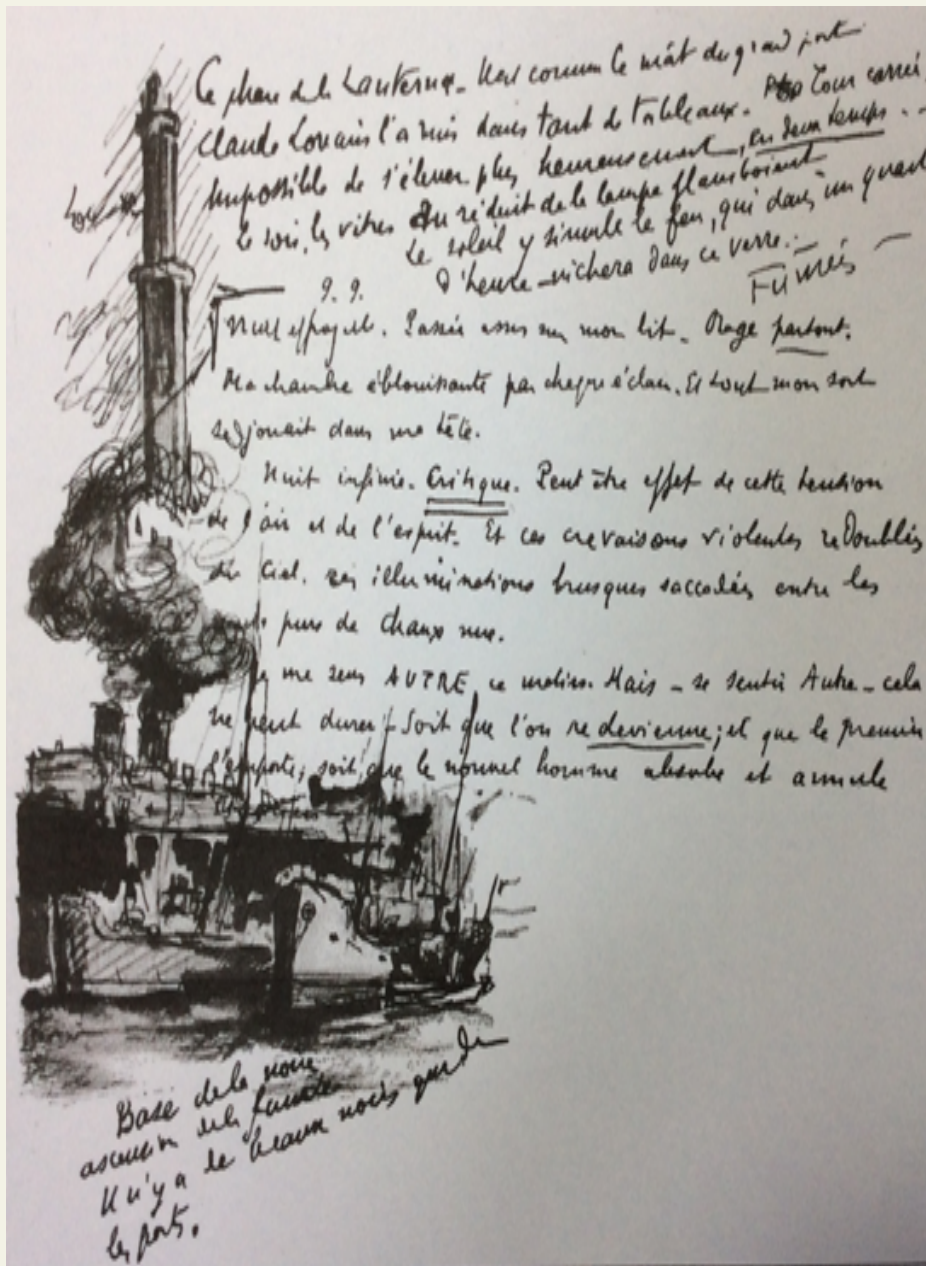 Ce phare de la Lanterne. Il est comme le mât du grand port
Claude Lorrain l'a mis dans tant de tableaux. Tour carrée,
Impossible de s'élever plus heureusement, en deux temps..
Le soir, les vitres du réduit de la lampe flamboient
Le soleil y simule le feu, qui dans un quart
d'heure nichera dans ce verre.
Fumées
Nuit effroyable. Passée assis sur mon lit. Orage partout.
Ma chambre éblouissante par chaque éclair. Et tout mon sort
se jouait dans ma tête.
Nuit infinie. Critique. Peut être effet de cette tension
de l'air et de l'esprit. Et ces crevaisons violentes redoublées
du Ciel, ces illuminations brusques saccadées entre les
murs purs de chaux nue.
Je me sens AUTRE ce matin. Mais – se sentir Autre – cela
ne peut durer – Soit que l'on redevienne; et que le premier
l'emporte; soit que le nouvel homme absorbe et annule
Base de la noire
ascension de la fumée
Il n'y a de beaux noirs que dans
les ports.